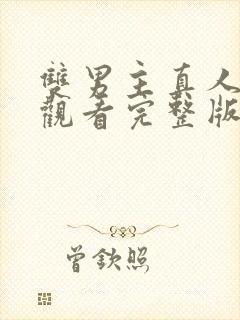 雙男主真人
觀看完整版
曾欽照